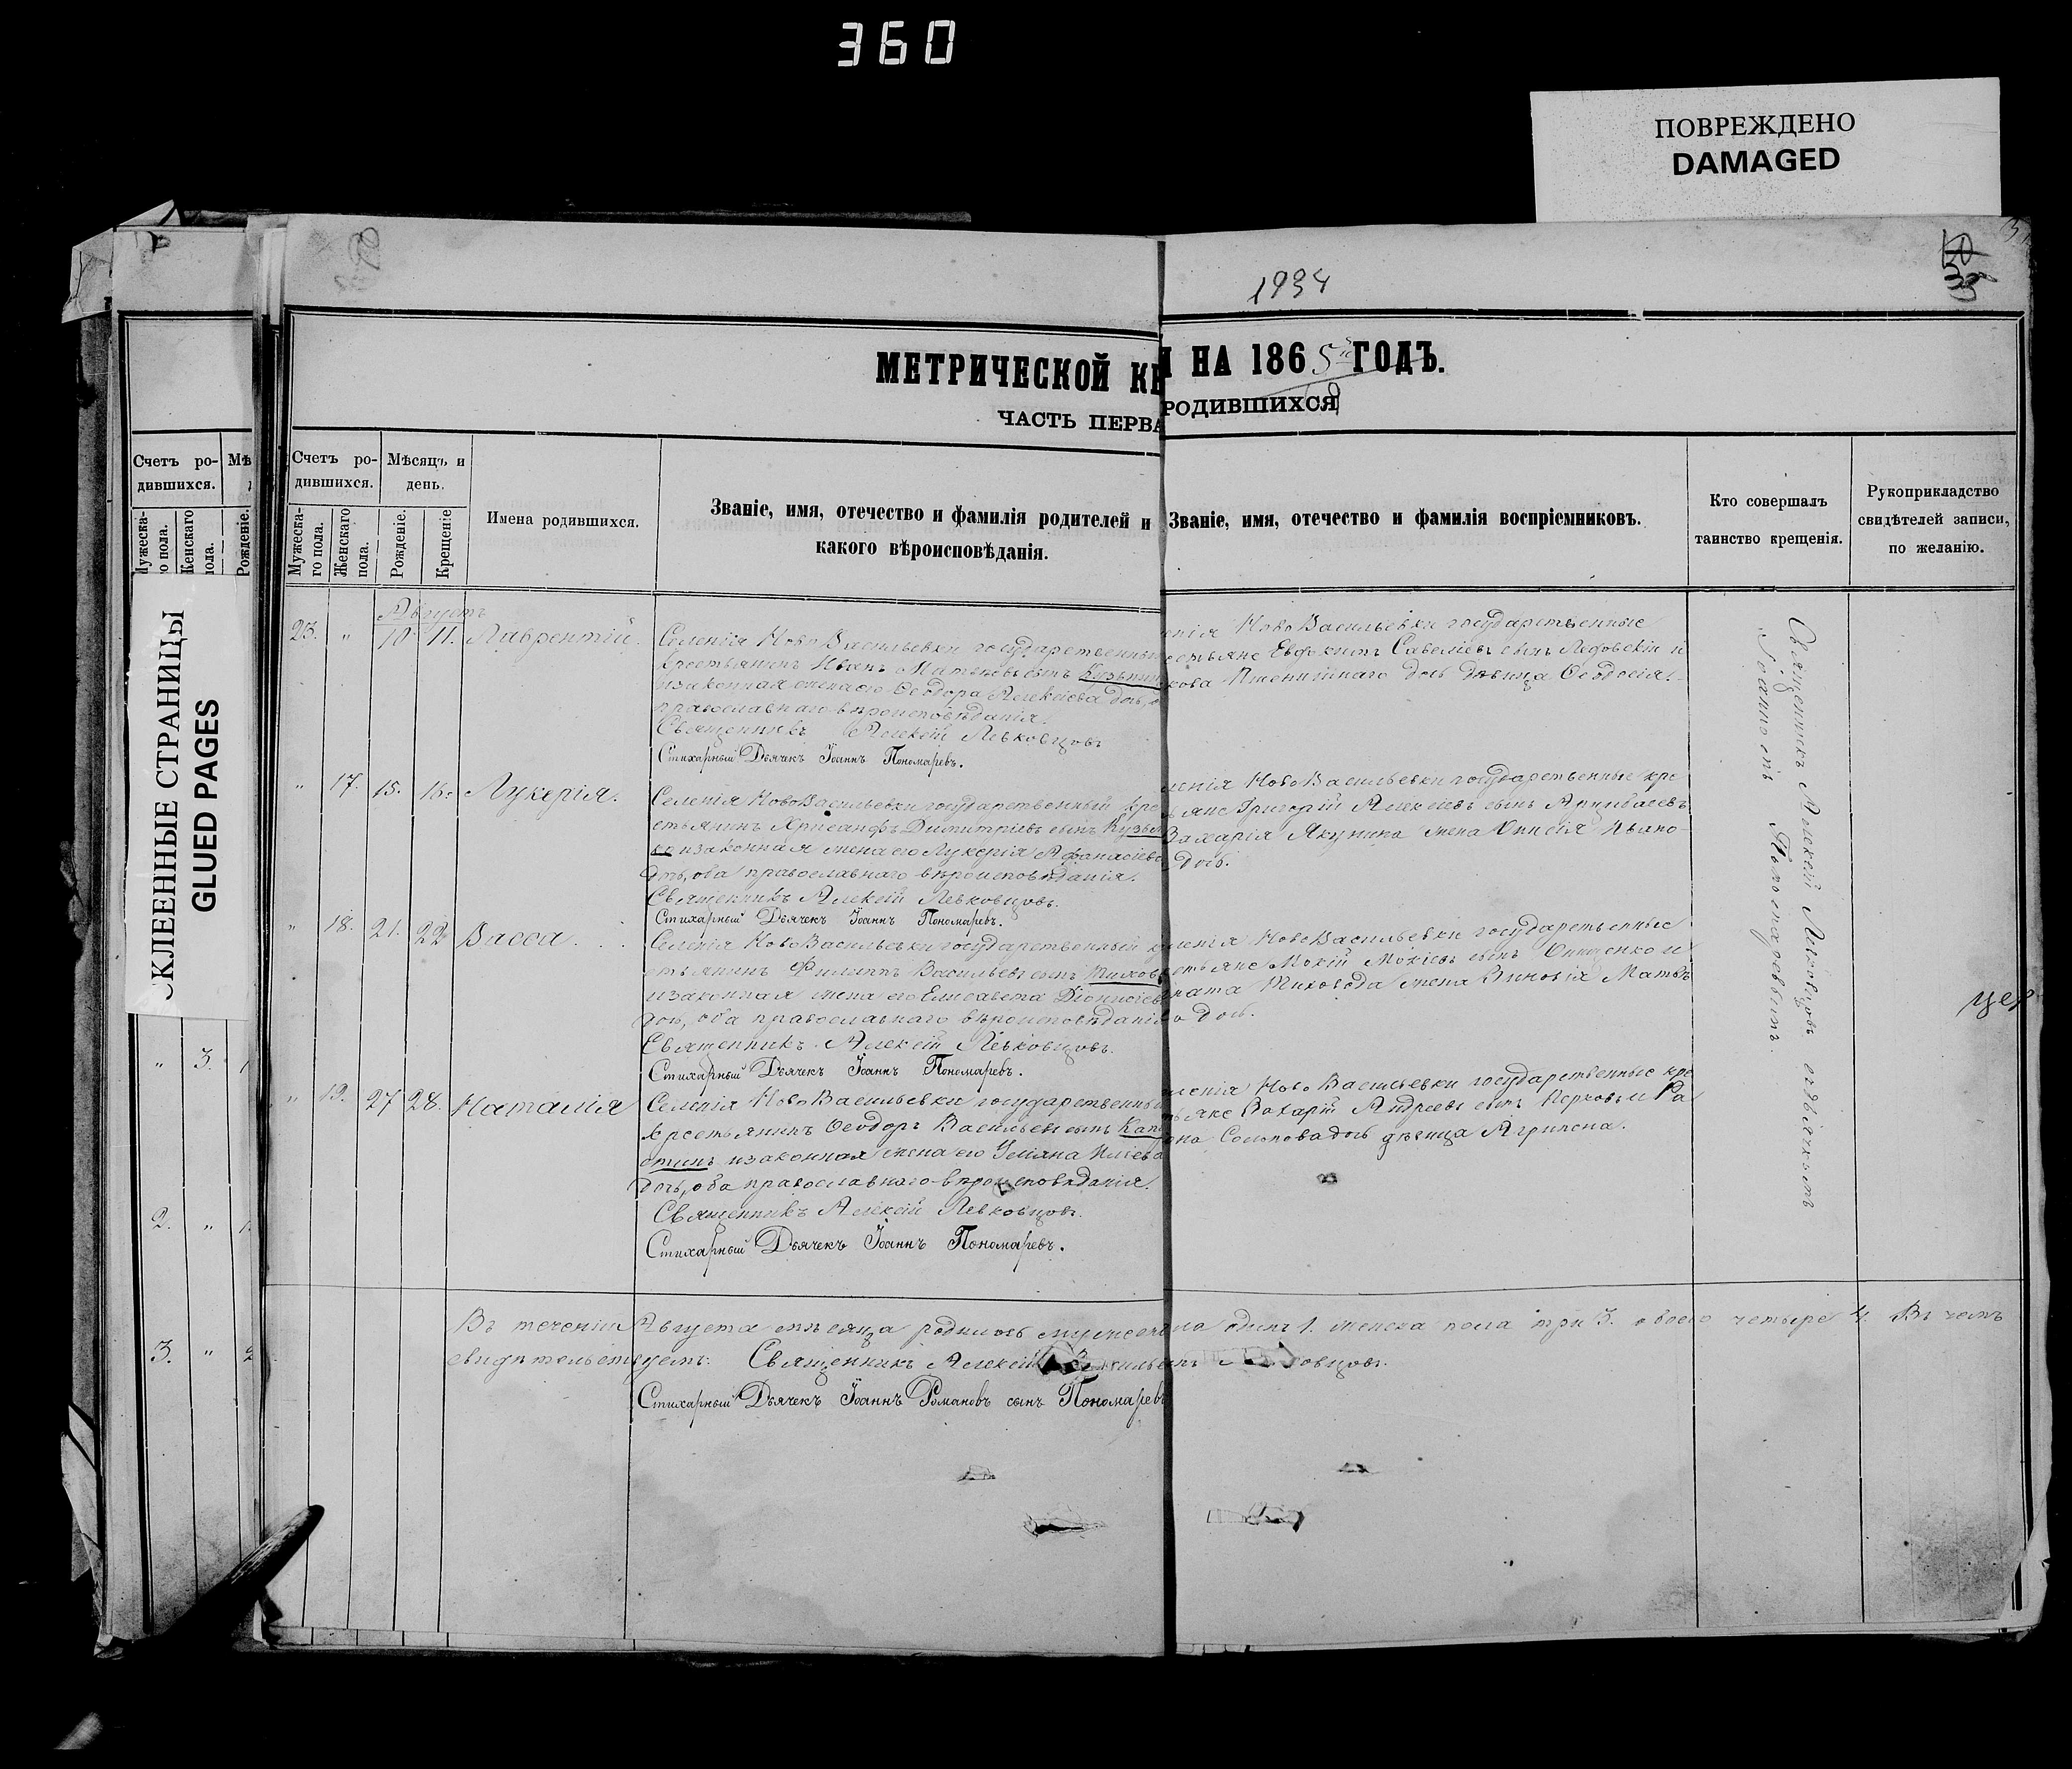 360
ПОВРЕЖДЕНО
DAMAGED
1934
МЕТРИЧЕСКОЙ КН
И НА 1865 ГОДЪ.
ЧАСТЬ ПЕРВА
РОДИВШИХСЯ
Счетъ ро-
дившихся.
Мѣ
Мужеска-
го пола.
Женскаго
пола.
Рожденіе.
СКЛЕЕННЫЕ СТРАНИЦЫ
GLUED PAGES
" 3. 1
2. "
3. " 2
Счетъ ро-
дившихся.
Мѣсяцъ и
день.
Мужеска-
го пола.
Женскаго
пола.
Рожденіе.
Крещеніе
Имена родившихся.
Званіе, имя, отечество и фамилія родителей и
какого вѣроисповѣданія.
Званіе, имя, отечество и фамилія воспріемниковъ.
Кто совершалъ
таинство крещенія.
Рукоприкладство
свидѣтелей записи,
по желанію.
Августъ
23. " 10 11. Лаврентій.
Селенія НовоВасильевки государственный
крестьянинъ Иванъ сынъ Кузьмин
и законная жена его Ѳеодора Алексіева дочь,
православнаго вѣроисповѣданія.
Священникъ Алексій Левковцовъ
Стихарный Дьячекъ Іоаннъ Пономаревъ.
енія НовоВасильевки государственные
естьяне Евфимъ Савеліевъ сынъ и
кова Пшенишнаго дочь дѣвица Ѳеодосія.
" 17. 15. 16. Лукерія.
Селенія НовоВасильевки государственный кре
стьянинъ Хрисанфъ Димитріевъ сынъ Кузьм
и законная жена его Лукерія Афанасіева
дочь, оба православнаго вѣроисповѣданія.
Священникъ Алексій Левковцовъ.
Стихарный Дьячекъ Іоаннъ Пономаревъ.
ленія НовоВасильевки государственные кре
ьяне Григорій Алексіевъ сынъ
Захарія Якунина жена Ивано-
дочь.
" 18. 21. 22 Васса.
Селенія НовоВасильевки государственный к
стьянинъ Филиппъ Васильевъ сынъ Тихов
и законная жена его Елисавета Діонисіев
дочь, оба православнаго вѣроисповѣданія
Священникъ Алексій Левковцовъ.
Стихарный Дьячекъ Іоаннъ Пономаревъ.
ленія НовоВасильевки государственные
стьяне Мокій Мокіевъ сынъ Онищенко и
ната Тиховода жена Зиновія Матѳѣ
а дочь.
цер
" 19. 27 28. Наталія
Селенія НовоВасильевки государственный
крестьянинъ Ѳеодоръ Васильевъ сынъ Кап
и законная жена его Уліана Иліева
дочь, оба православнаго вѣроисповѣданія.
Священникъ Алексій Левковцовъ.
Стихарный Дьячекъ Іоаннъ Пономаревъ.
ленія НовоВасильевки государственные кре
тьяне Захарій Андреевъ сынъ и
дочь дѣвица Агрипена.
Священникъ Алексій Левковцовъ съ Дьячкомъ
Іоанномъ Пономаревымъ.
Въ теченіи Августа мѣсяца родилось мужеска пола одинъ 1. женска пола три 3. обоего четыре 4. Въ чемъ
свидѣтельствуемъ: Священникъ Алексій
Стихарный Дьячекъ Іоаннъ Романовъ сынъ Пономаревъ